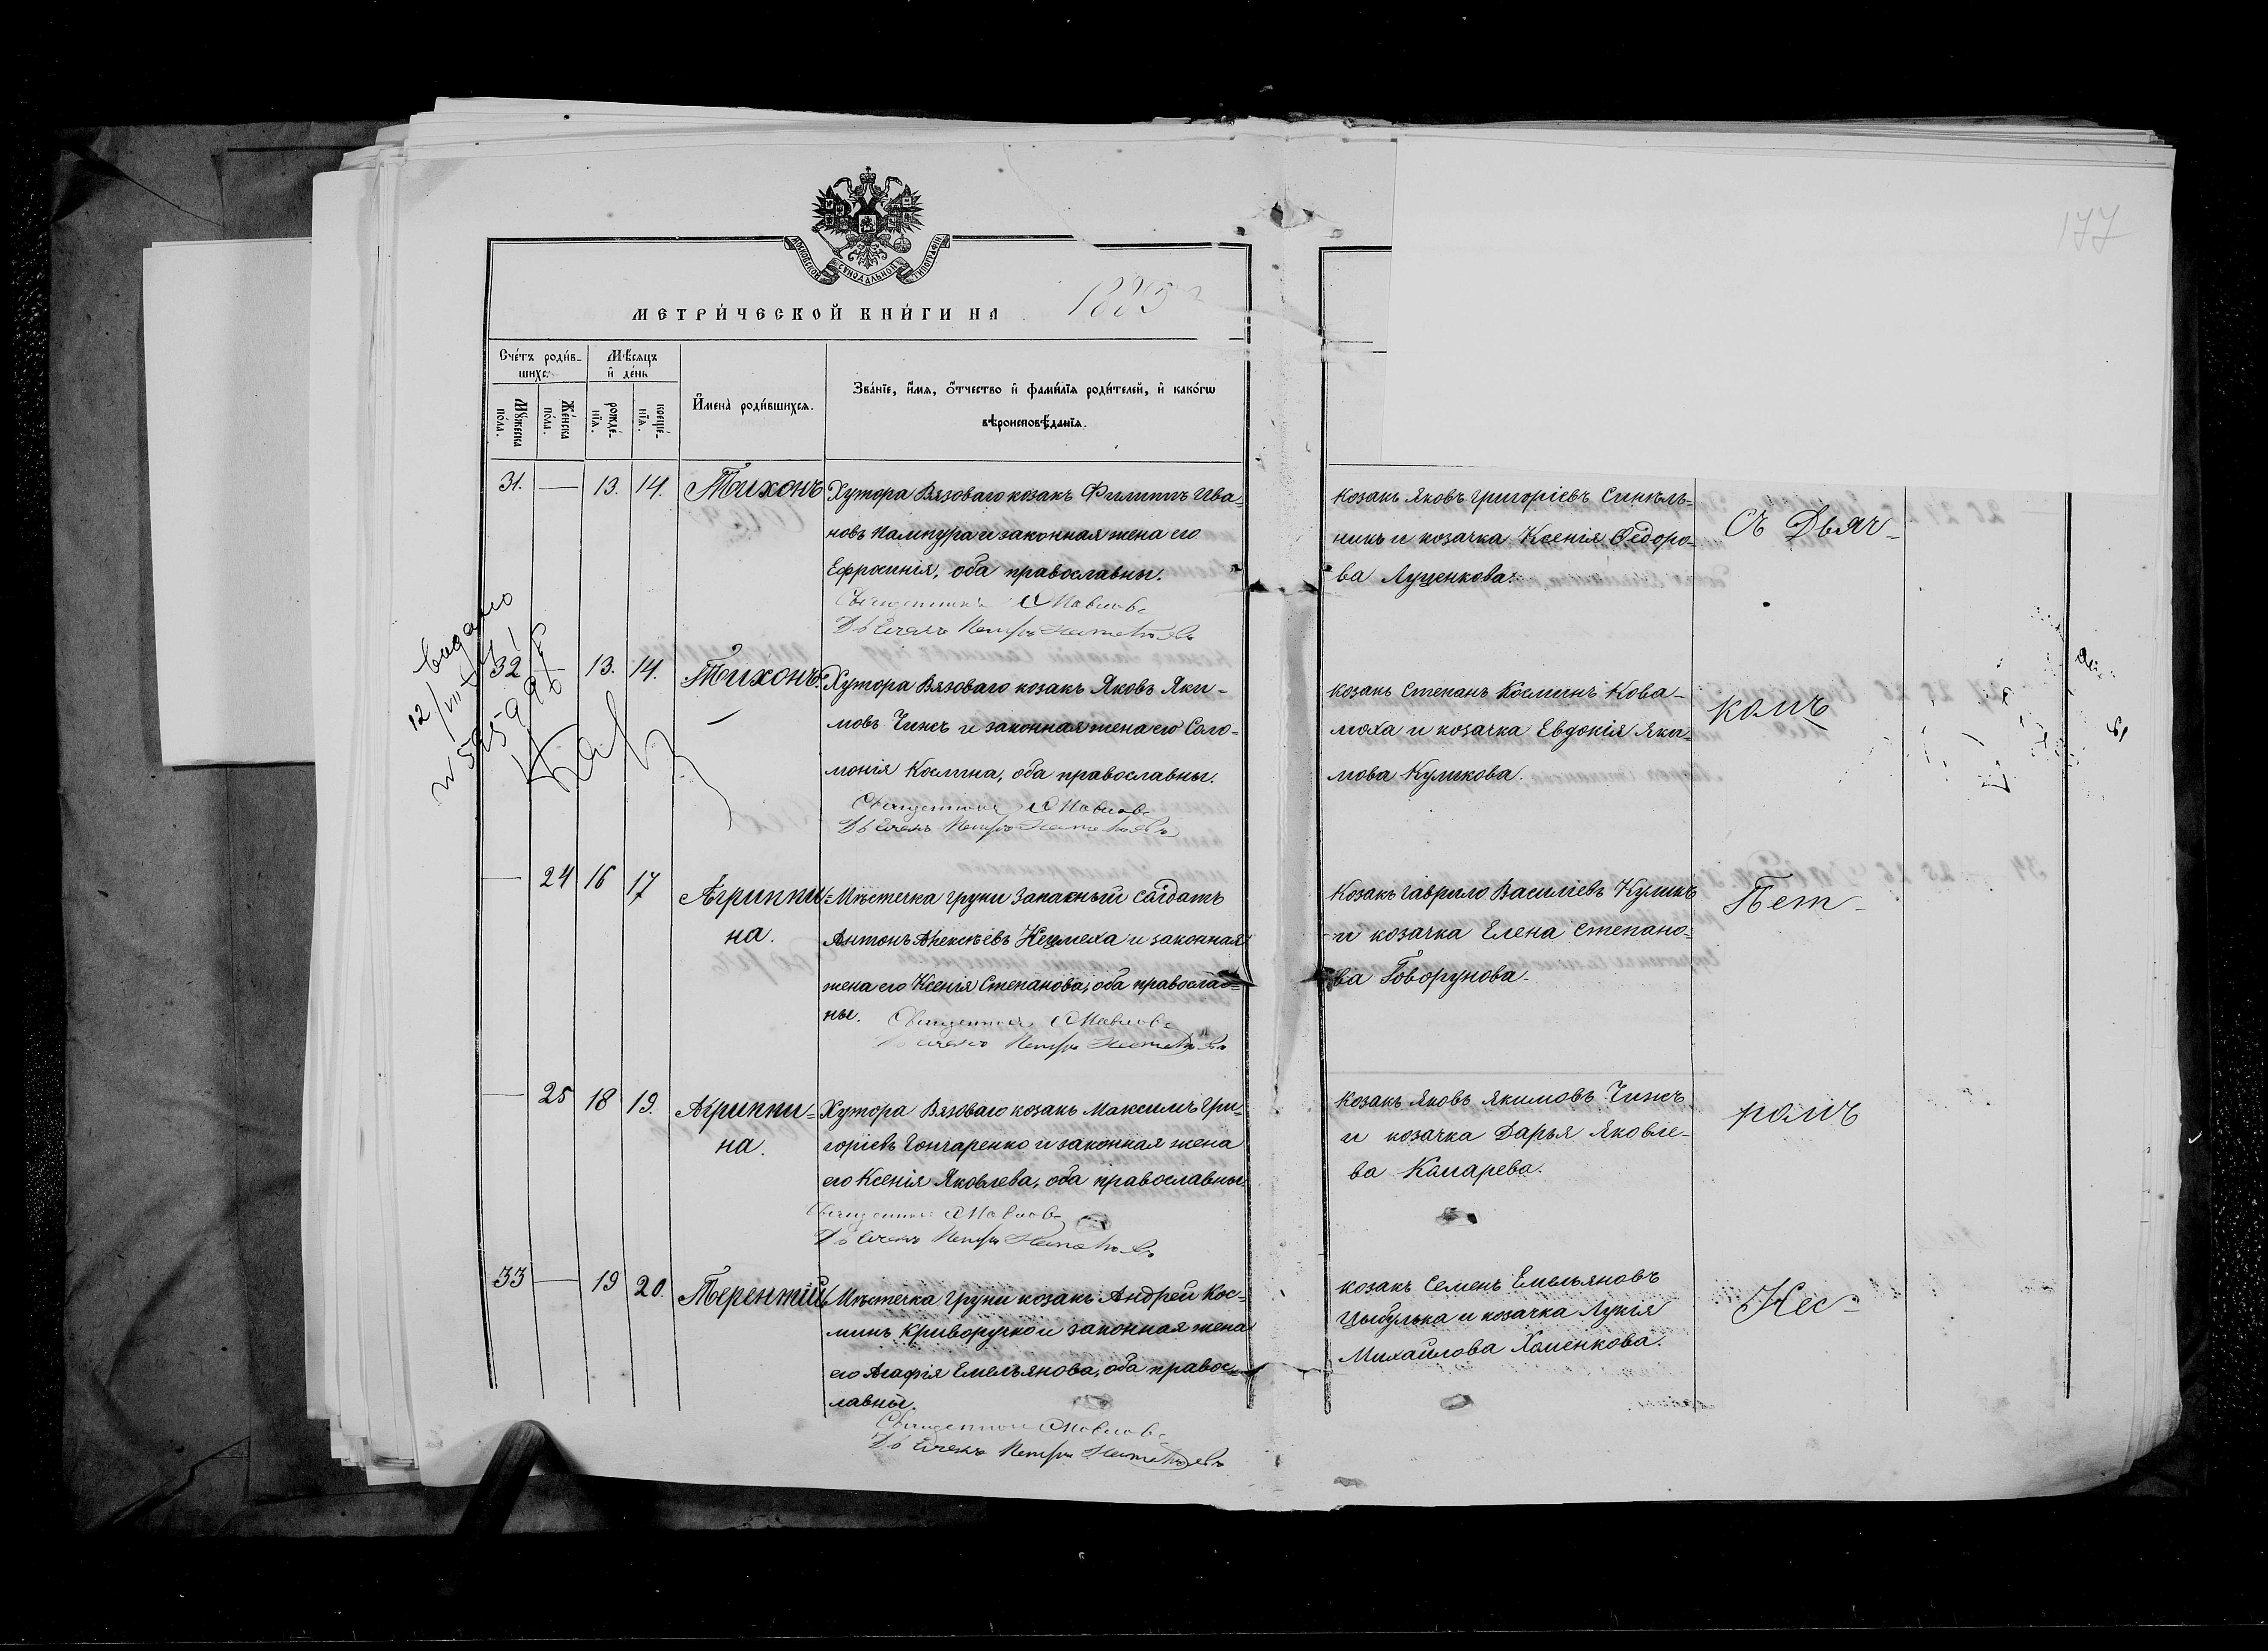 177
МОСКОВСКОЙ СѴНОДАЛЬНОЙ ТИПОГРАФІИ
МЕТРИ́ЧЕСКОЙ КНИ́ГИ НА 1885
Сче́тъ роди́в-
шихс
Мѣ́сяцъ
и҆ де́нь
И҆мена̀ роди́вшихся.
Зва́нїе, и҆́мя, ѻ҆́тчество и҆ фами́лїя роди́телей, и҆ како́гѡ
вѣроисповѣ́данїя.
Мꙋ́жеска
по́ла.
Же́нска
по́ла.
рожде́-
нїя.
креще́-
нїя.
31. — 13. 14. Тихонъ
Хутора Вязоваго козакъ Филиппъ Ива-
новъ Палтура и законная жена его
Ефросинія, оба православны.
Священникъ Павлов
Дьячекъ Петръ
Козакъ Яковъ Григоріевъ Синель-
никъ и козачка Ксенія Федоро-
ва Луценкова.
Съ Дьяч-
видано
12/VIII
32 — 13. 14. Тихонъ.
Хутора Вязоваго козакъ Яковъ Яки-
мовъ Чижъ и законная жена его Соло-
монія Космина, оба православны.
Священникъ Павлов
Дьячекъ Петръ
Козакъ Степанъ Косминъ Кова-
лоха и козачка Евдокія Яки-
мова Куликова.
комъ
— 24 16 17 Агриппи-
на.
Мѣстечка Груни запасный солдатъ
Антонъ Алексѣевъ Кецмеха и законная
жена его Ксенія Степанова, оба православ-
ны.
Священникъ Павлов
Дьячекъ Петръ
Козакъ Гаврило Василіевъ Куликъ
и козачка Елена Степано-
ва Говорунова.
Пет-
— 25 18 19. Агриппи-
на.
Хутора Вязоваго козакъ Максимъ Гри-
горіевъ Гончаренко и законная жена
его Ксенія Яковлева, оба православны.
Священникъ Павлов
Дьячекъ Петръ
Козакъ Яковъ Якимовъ Чижъ
и козачка Дарья Яковле-
ва Комарева.
ромъ
33 — 19 20. Терентій
Мѣстечка Груни козакъ Андрей Кос-
минъ Криворучко и законная жена
его Агафія Емельянова, оба правос-
лавны.
Священникъ Павлов
Дьячекъ Петръ
Козакъ Семенъ Емельяновъ
Цыбулька и козачка Лукія
Михайлова Хоменкова.
Нес-